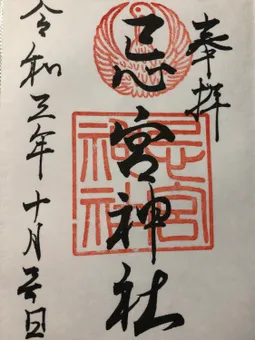 奉拝
忌宮神社
令和三年十月日
忌宮
神社